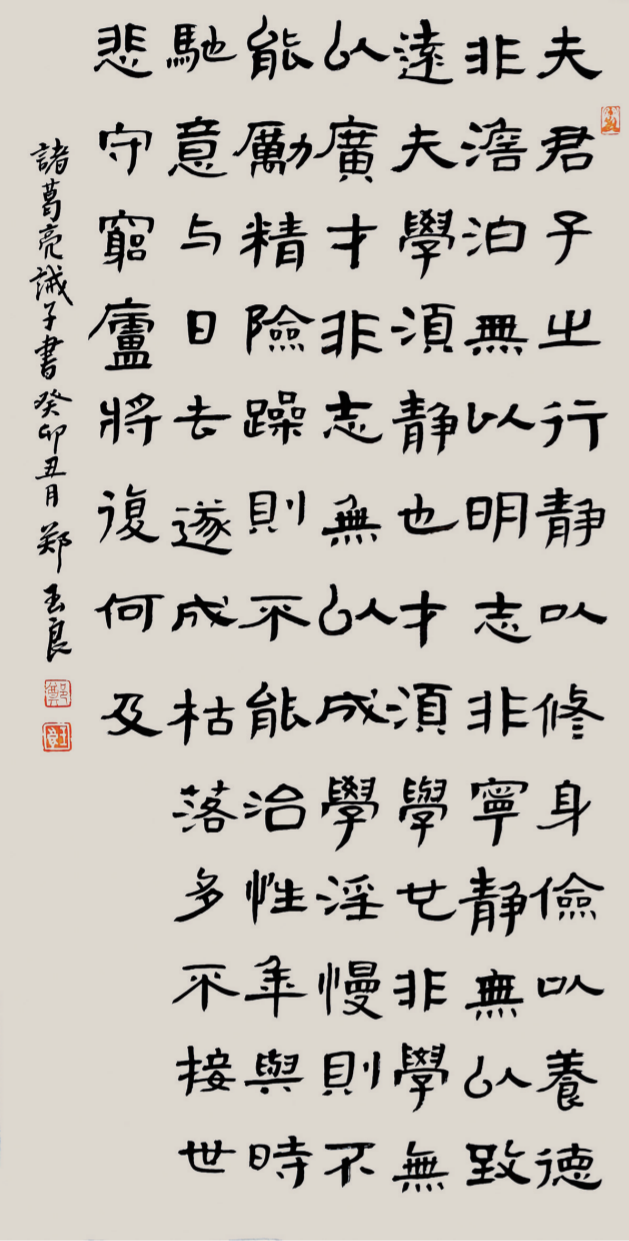 夫君子之行静以修身儉以養德
非澹泊無以明志非寧静無以致
遠夫學須静也才須學也非學無
以廣才非志無以成學淫慢則不
能勵精險躁則不能治性年與時
馳意与日去遂成枯落多不接世
悲守窮廬將復何及
諸葛亮誡子書癸卯丑月郑玉良